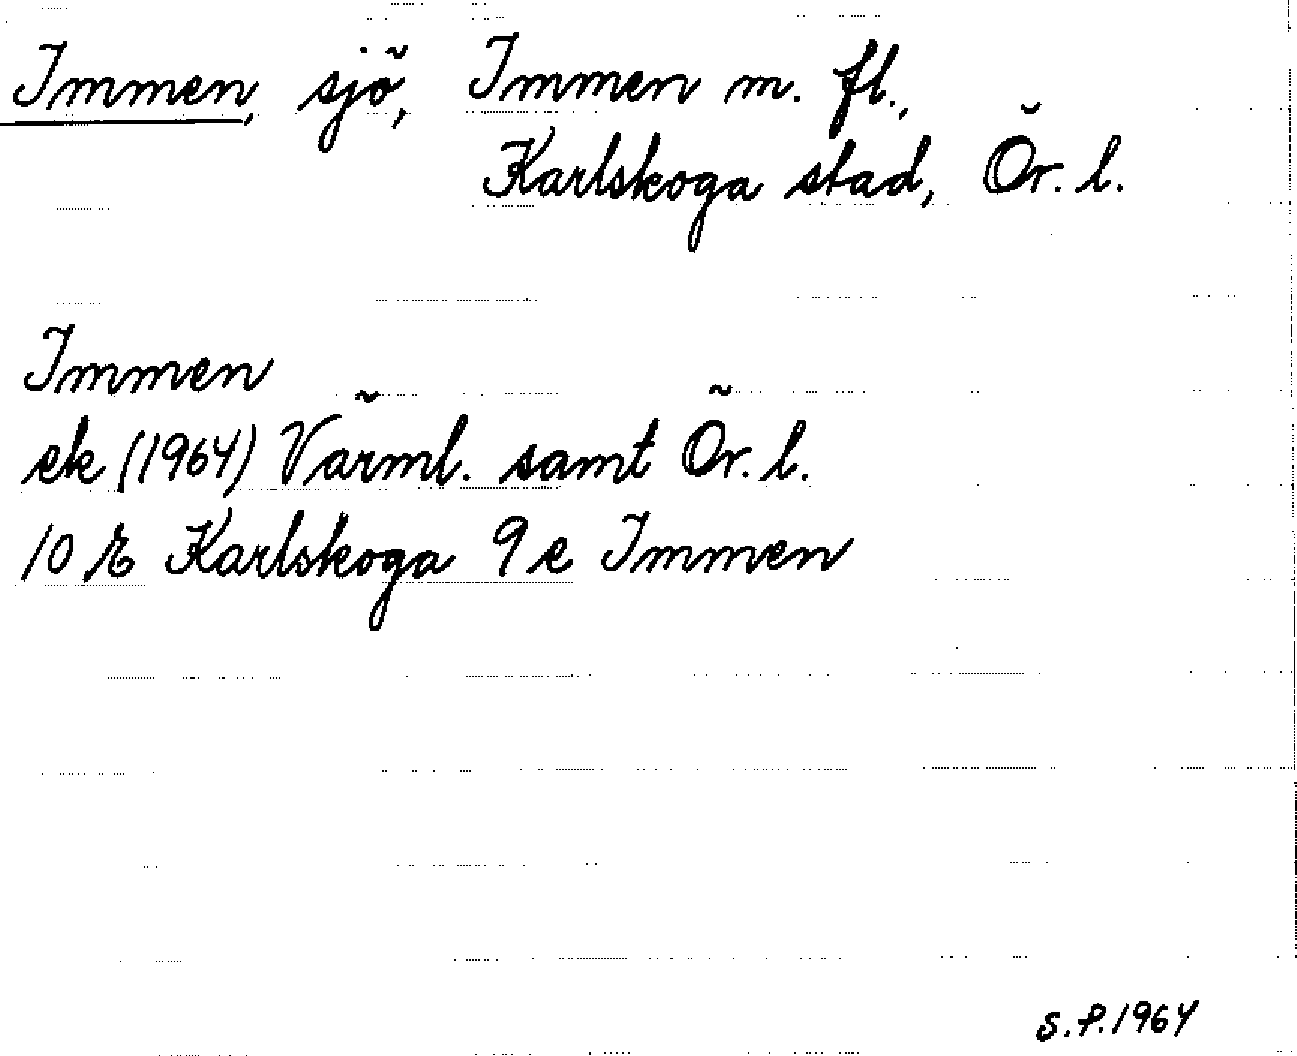 Immen, sjö, Immen m. fl.,
Karlskoga stad, Ör. l.
Immen
ek (1964) Värml. samt Ör. l.
10 E Karlskoga 9 e Immen
S.P. 1964